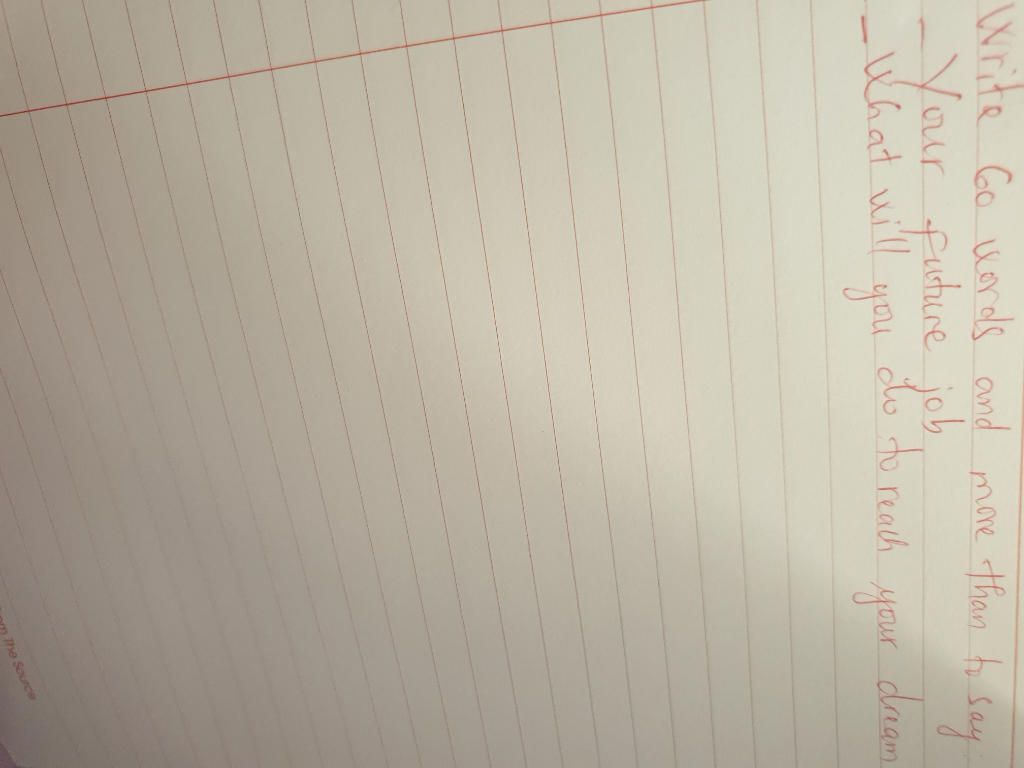 Write 60 words and more than to say
- Your future job
- What will you do to reach your dream
The Source